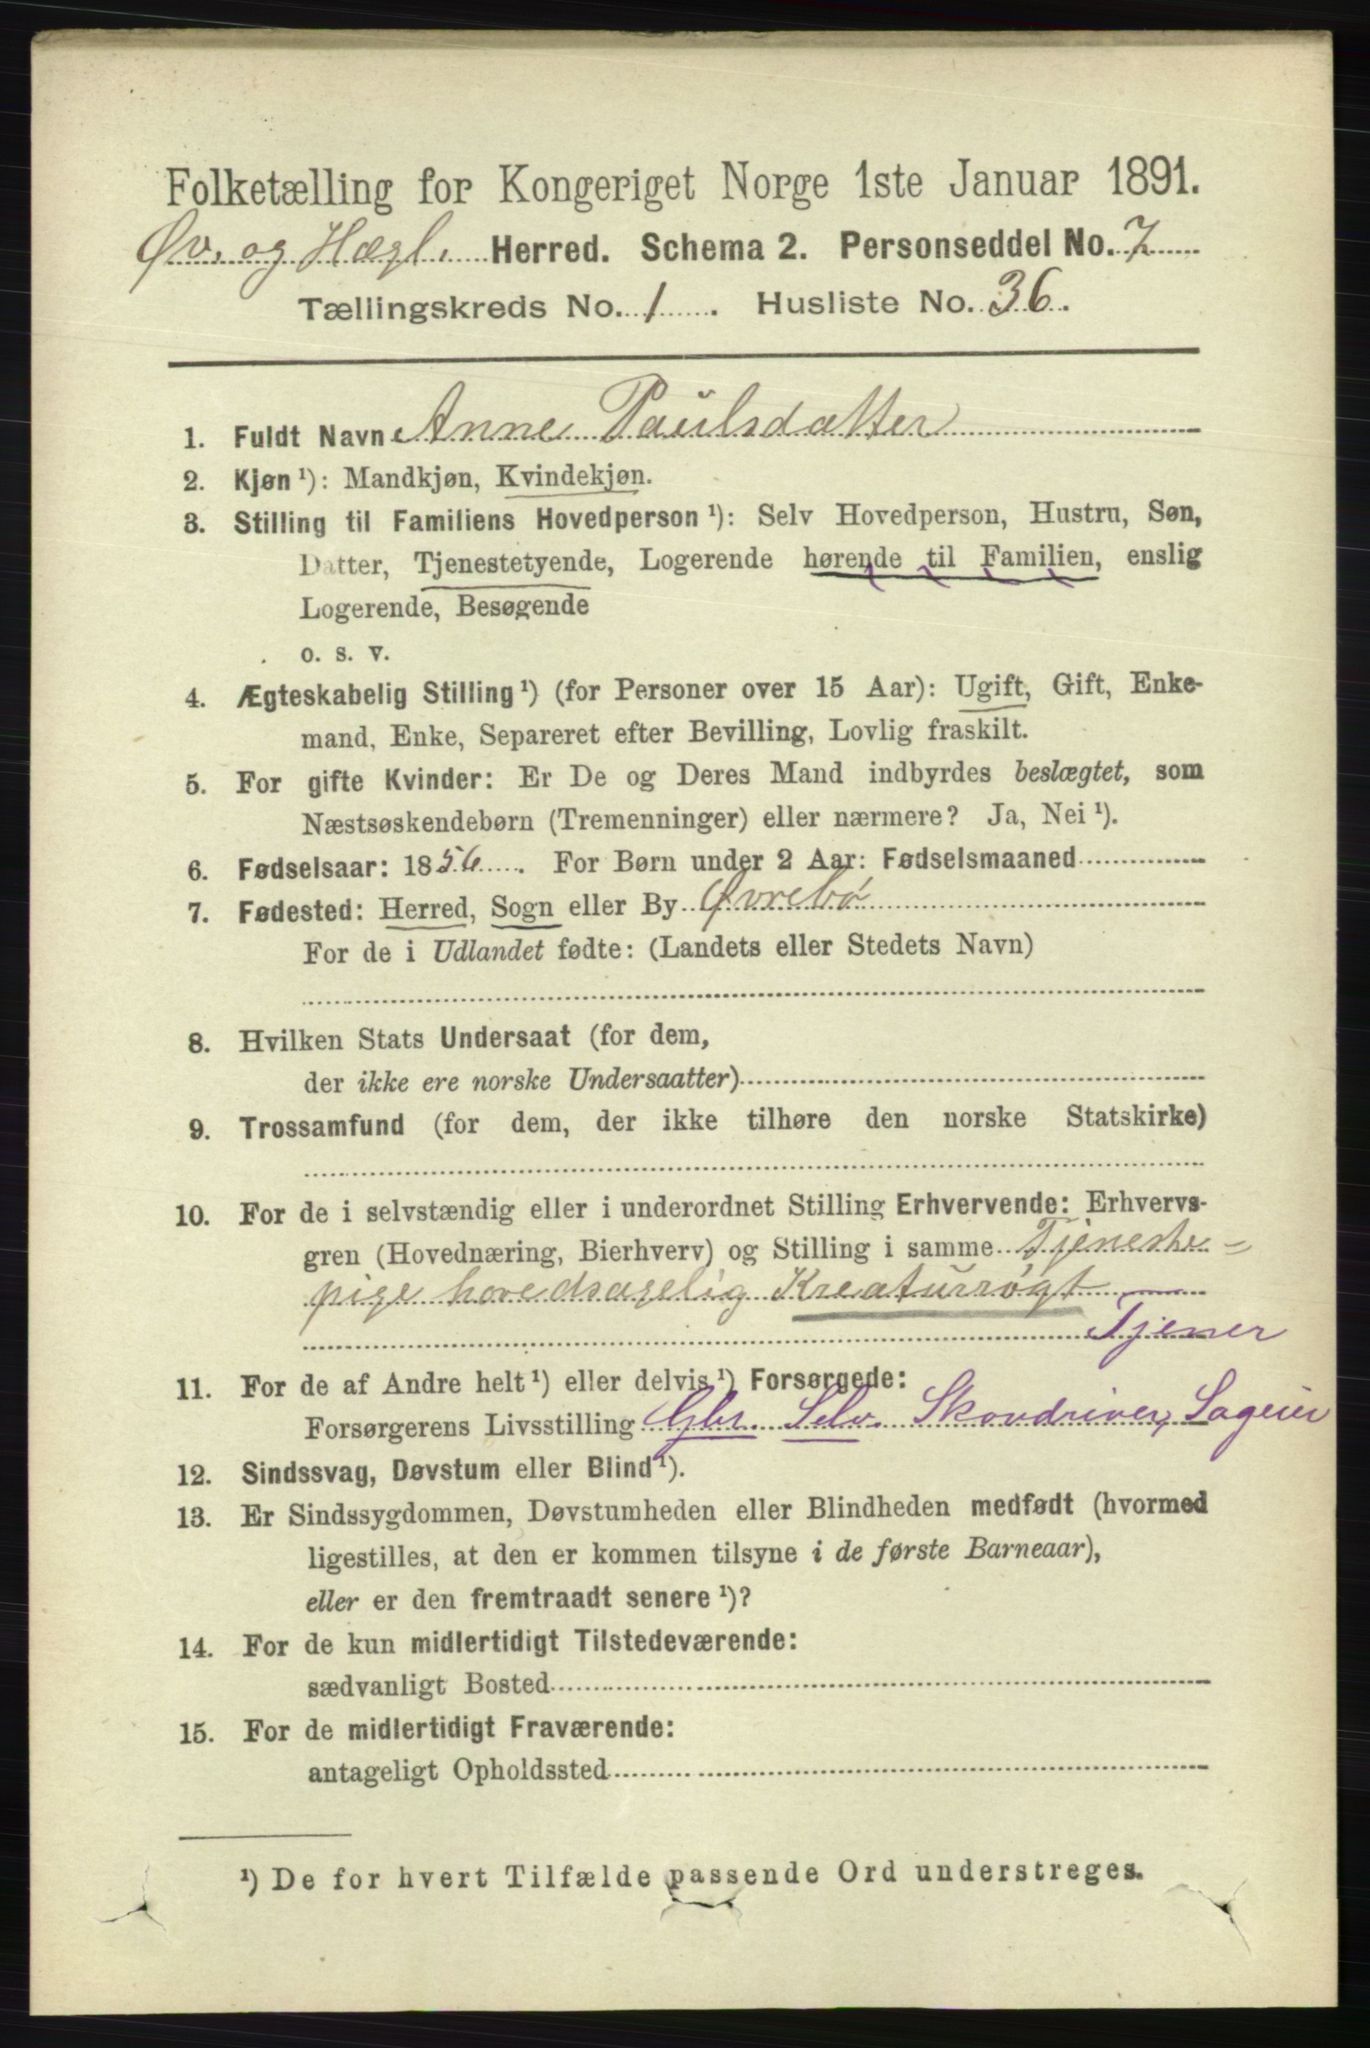 Folketælling for Kongeriget Norge 1ste Januar 1891.
Øv. og Hægl. Herred. Schema 2. Personseddel No. 7
Tællingskreds No. 1. Husliste No. 36.
1. Fuldt Navn Anne Paulsdatter
2. Kjøn ¹): Mandkjøn, Kvindekjøn.
3. Stilling til Familiens Hovedperson ¹): Selv Hovedperson, Hustru, Søn,
Datter, Tjenestetyende, Logerende hørende til Familien, enslig
Logerende, Besøgende
o. s. v.
4. Ægteskabelig Stilling ¹) (for Personer over 15 Aar): Ugift, Gift, Enke-
mand, Enke, Separeret efter Bevilling, Lovlig fraskilt.
5. For gifte Kvinder: Er De og Deres Mand indbyrdes beslægtet, som
Næstsøskendebørn (Tremenninger) eller nærmere? Ja, Nei ¹).
6. Fødselsaar: 1856. For Børn under 2 Aar: Fødselsmaaned
7. Fødested: Herred, Sogn eller By Øvrebø
For de i Udlandet fødte: (Landets eller Stedets Navn)
8. Hvilken Stats Undersaat (for dem,
der ikke ere norske Undersaatter)
9. Trossamfund (for dem, der ikke tilhøre den norske Statskirke)
10. For de i selvstændig eller i underordnet Stilling Erhvervende: Erhvervs-
gren (Hovednæring, Bierhverv) og Stilling i samme Tjeneste=
pige hovedsagelig Kreaturrøgt
Tjener
11. For de af Andre helt ¹) eller delvis ¹) Forsørgede:
Forsørgerens Livsstilling Gbr. Selv. Skovdriver, Sageier
12. Sindssvag, Døvstum eller Blind ¹).
13. Er Sindssygdommen, Døvstumheden eller Blindheden medfødt (hvormed
ligestilles, at den er kommen tilsyne i de første Barneaar),
eller er den fremtraadt senere ¹)?
14. For de kun midlertidigt Tilstedeværende:
sædvanligt Bosted
15. For de midlertidigt Fraværende:
antageligt Opholdssted
¹) De for hvert Tilfælde passende Ord understreges.